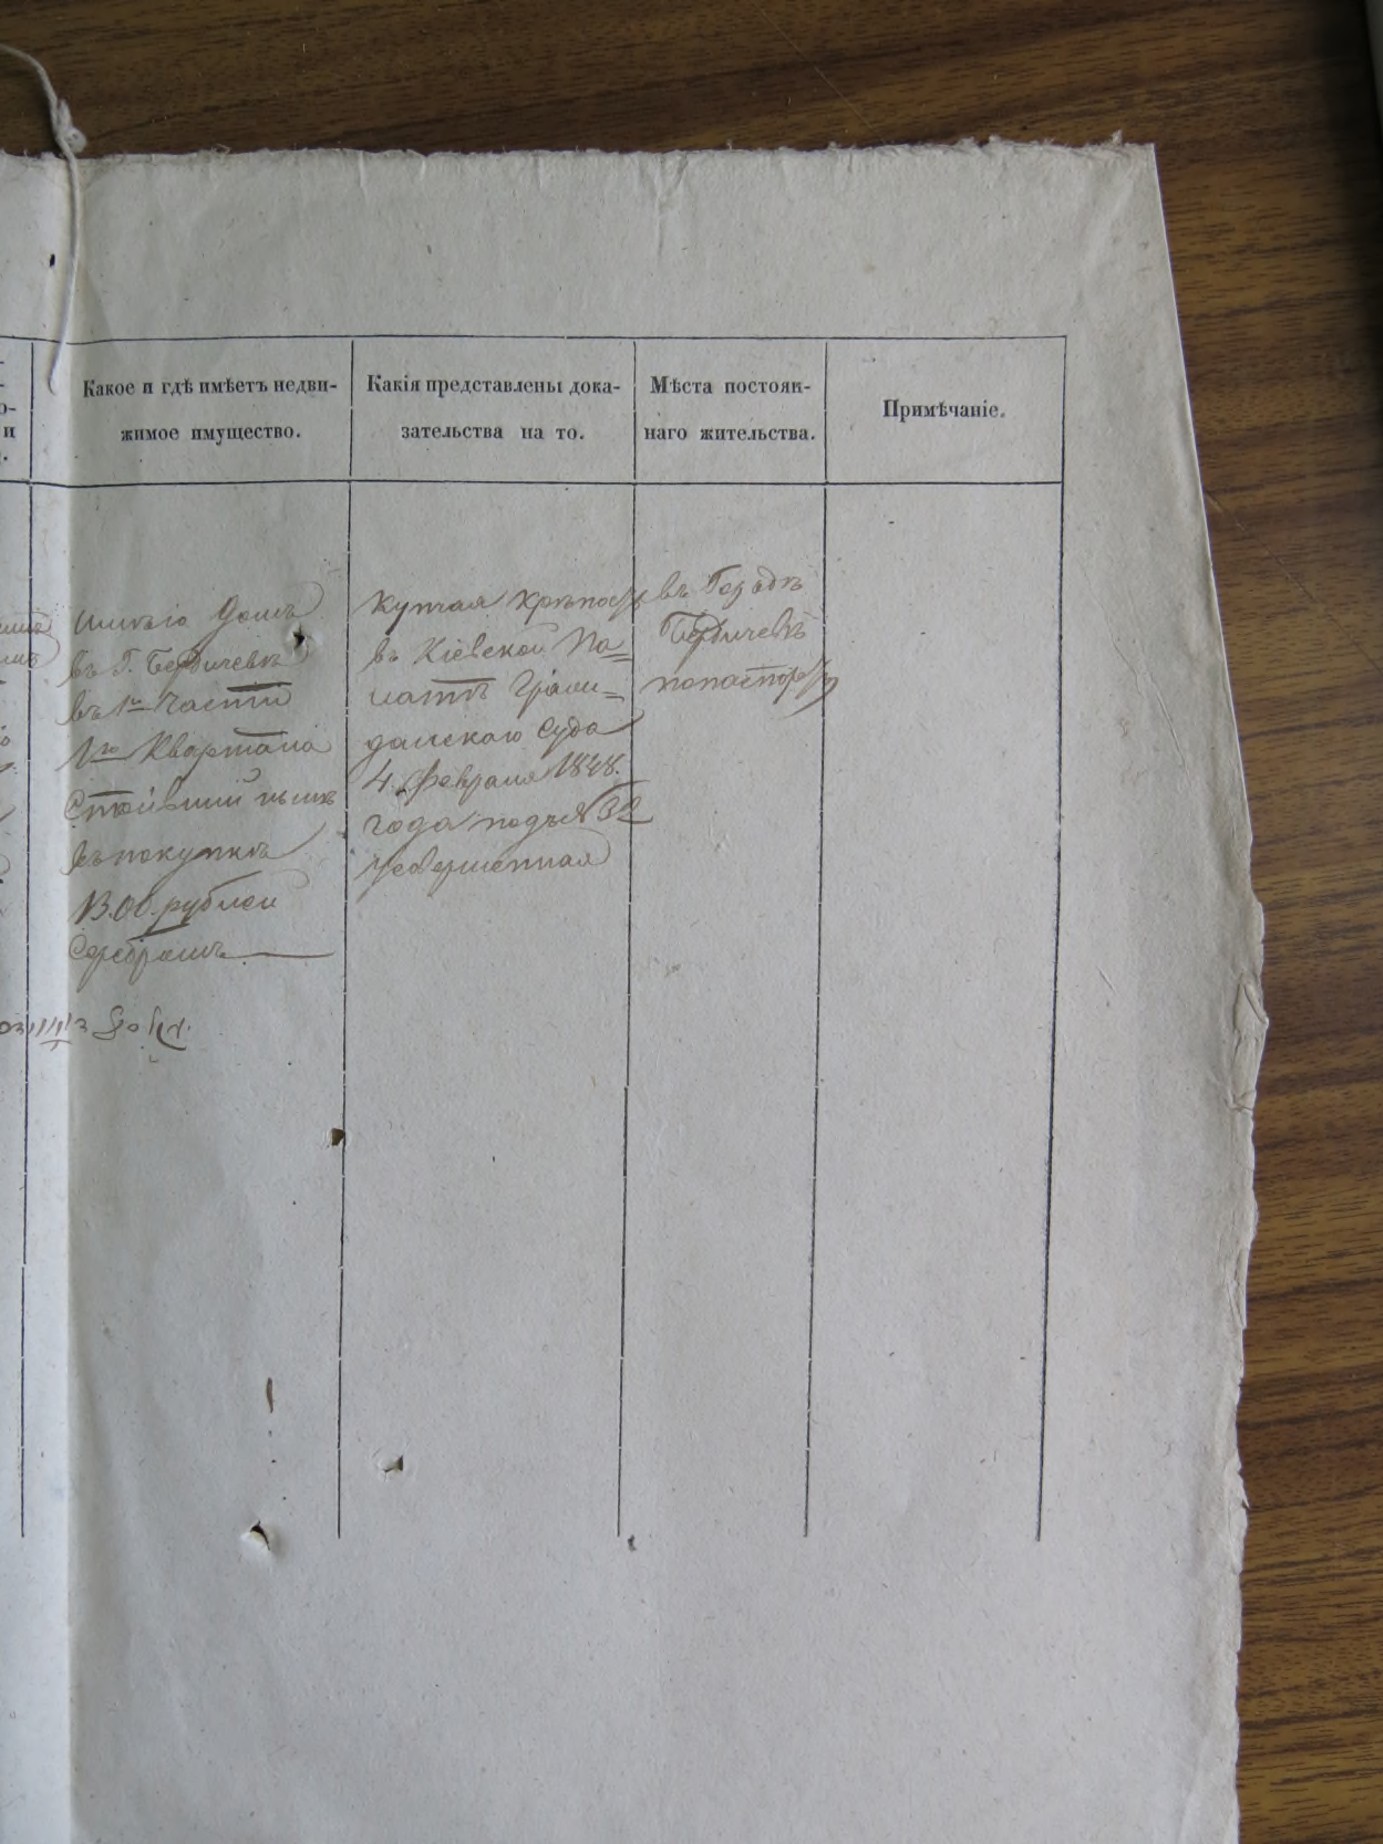 Какое и гдѣ имѣетъ недви-
жимое имущество.
Какія представлены дока-
зательства на то.
Мѣста постоян-
наго жительства.
Примѣчаніе.
Имѣю домъ
въ Г. Бердичевѣ
въ 1й Части
1го Квартала
Стоившій
въ покупкѣ
рублей
Серебромъ
Купчая крѣпость
въ Кіевской Па=
латѣ Граж=
данскаго Суда
4. Февраля 1848.
года подъ № 32
усовершенная
въ Городѣ
Бердичевѣ